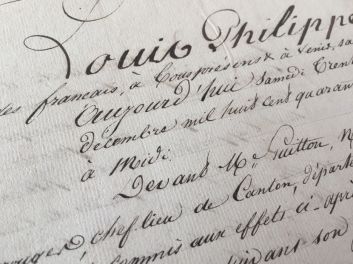 Louis Philippe
des français, à tous présens & à venir, sa
Aujourd'hui Samedi Trent
décembre mil huit cent quaran
à Midi.
Devant Me Guitton, N
chef-lieu de Canton, départe
commis aux effets ci-apr
son